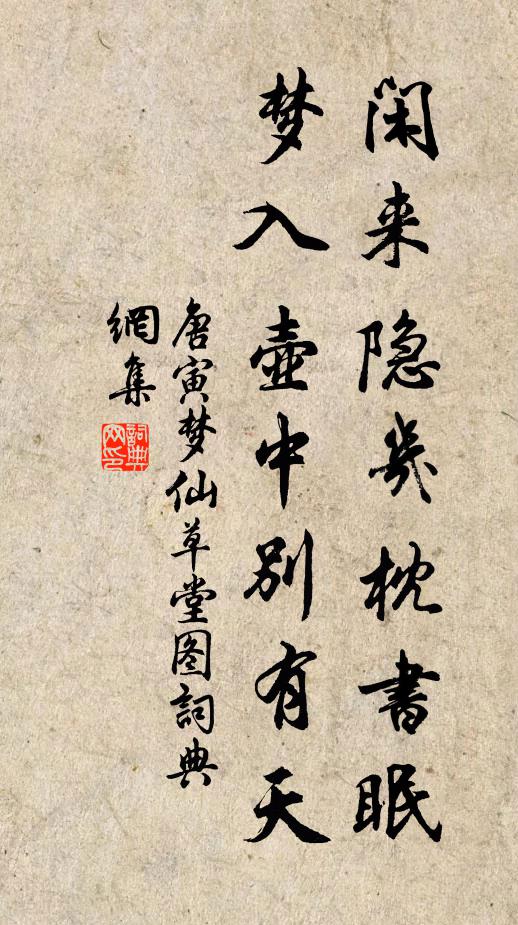 闲来隐几枕书眠
梦入壶中别有天
唐寅梦仙草堂图词典
网集
词典网印